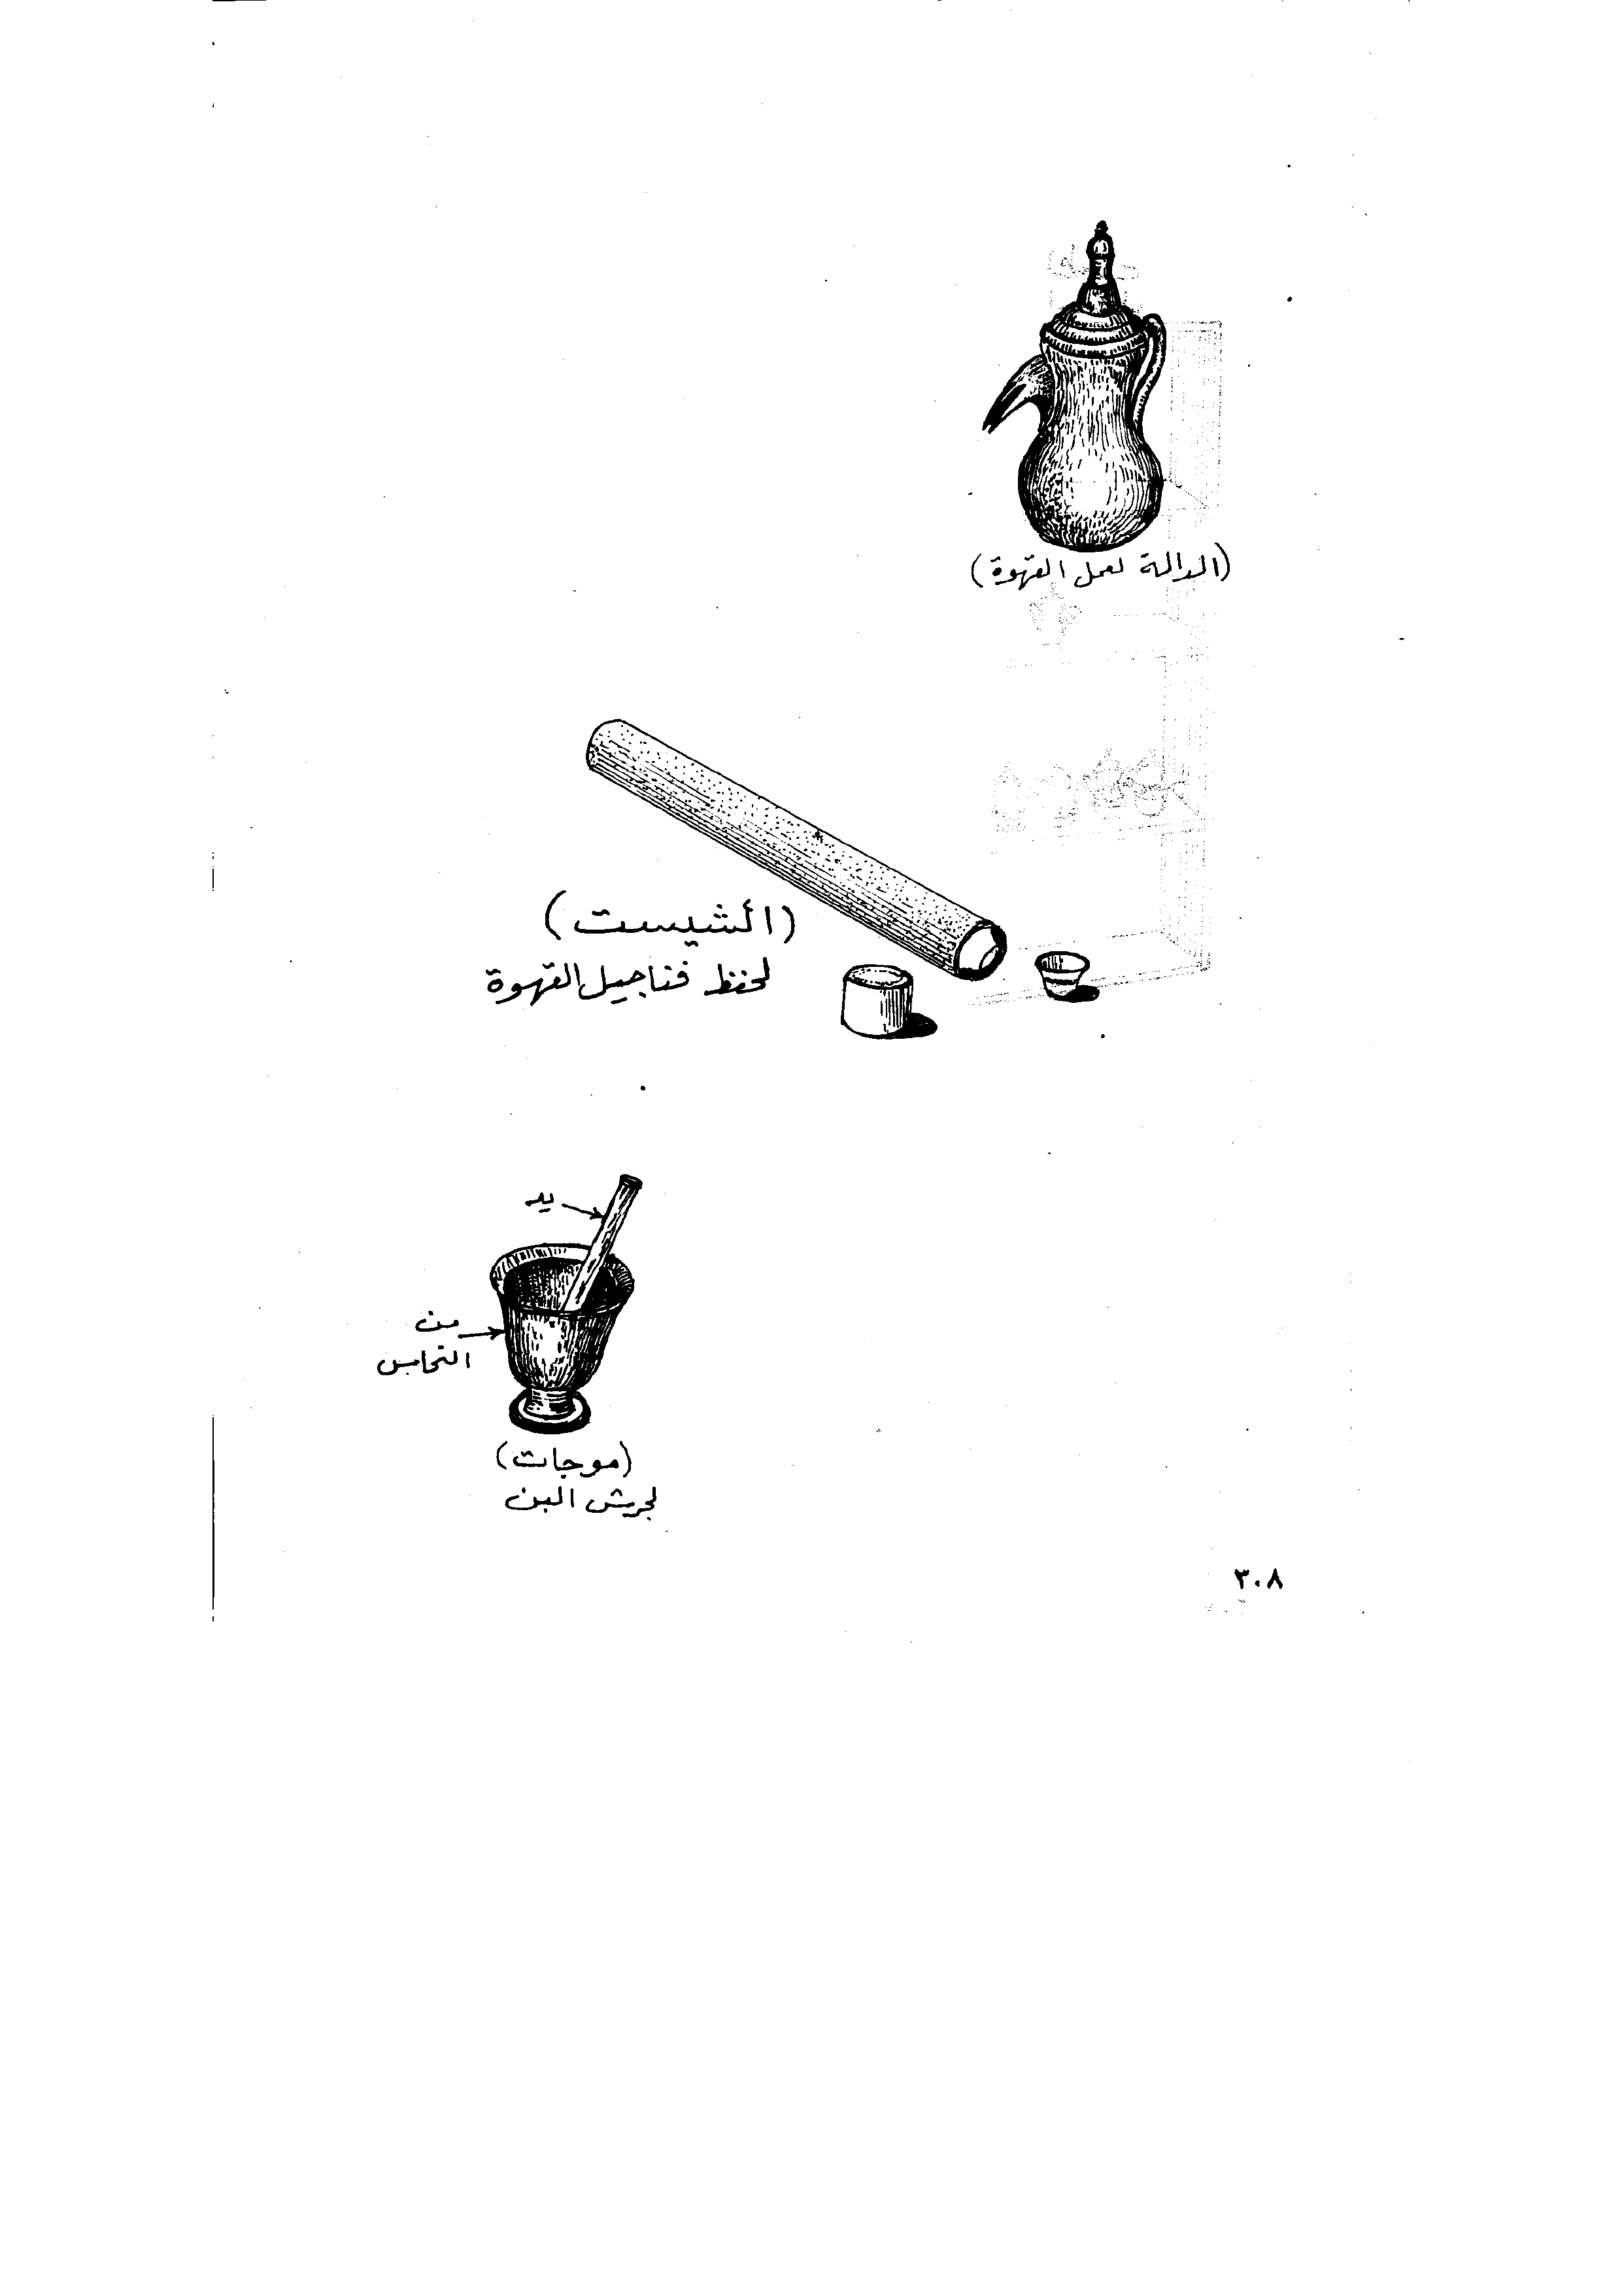 (الدالة لعمل القهوة)
(الشيست)
لحفظ فناجيل القهوة
يد
من
النحاس
(موجات)
لجرش البن
٣٠٨